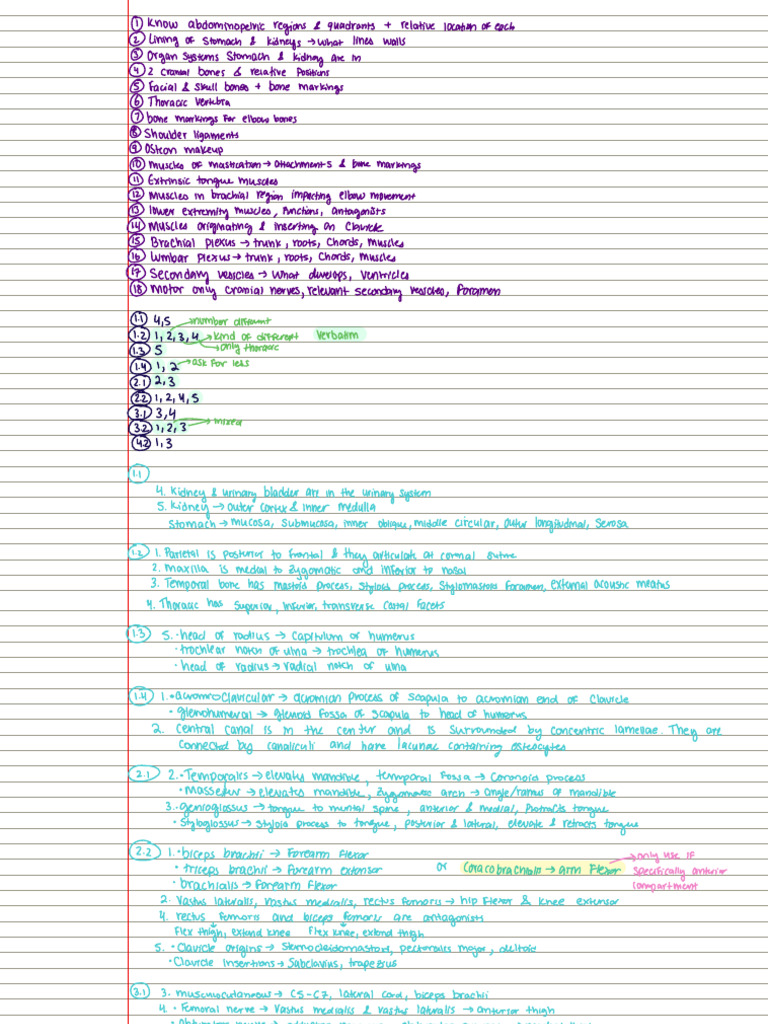 ① Know abdominopelvic regions & quadrants + relative location of each
② Lining of stomach & kidneys → what lines walls
③ Organ systems stomach & kidney are in
④ 2 cranial bones & relative positions
⑤ Facial & skull bones + bone markings
⑥ Thoracic vertebra
⑦ bone markings for elbow bones
⑧ Shoulder ligaments
⑨ Osteon makeup
⑩ muscles of mastication → attachments & bone markings
⑪ Extrinsic tongue muscles
⑫ Muscles in brachial region impacting elbow movement
⑬ lower extremity muscles, functions, antagonists
⑭ Muscles originating & inserting on Clavicle
⑮ Brachial plexus → trunk, roots, Chords, muscles
⑯ Lumbar plexus → trunk, roots, Chords, muscles
⑰ Secondary vesicles → What develops, ventricles
⑱ Motor only cranial nerves, relevant secondary vesicles, Foramen
1.1 4,5 → number different
1.2 1, 2, 3, 4 → kind of different Verbatim
1.3 5 → only thoracic
1.4 1, 2 → ask for less
2.1 2, 3
2.2 1, 2, 4, 5
3.1 3, 4
3.2 1, 2, 3 → mixed
4.2 1, 3
1.1
4. Kidney & urinary bladder are in the urinary system
5. kidney → outer cortex & inner medulla
Stomach → mucosa, submucosa, inner oblique, middle circular, outer longitudinal, serosa
1.2 1. Parietal is posterior to frontal & they articulate at coronal suture
2. Maxilla is medial to zygomatic and inferior to nasal
3. Temporal bone has mastoid process, styloid process, stylomastoid foramen, external acoustic meatus
4. Thoracic has superior, inferior, transverse costal facets
1.3 5. • head of radius → capitulum of humerus
• trochlear notch of ulna → trochlea of humerus
• head of radius → radial notch of ulna
1.4 1. • acromioclavicular → acromian process of scapula to acromian end of clavicle
• glenohumeral → glenoid fossa of scapula to head of humerus
2. Central canal is in the center and is surrounded by concentric lamellae. They are
connected by canaliculi and have lacunae containing osteocytes
2.1 2. • Temporalis → elevates mandible, temporal fossa → coronoid process
• masseter → elevates mandible, zygomatic arch → angle/ramus of mandible
3. • genioglossus → tongue to mental spine, anterior & medial, protracts tongue
• Styloglossus → styloid process to tongue, posterior & lateral, elevate & retracts tongue
2.2 1. • biceps brachii → Forearm flexor
• triceps brachii → Forearm extensor or Coracobrachialis → arm flexor → only use if specifically anterior compartment
• brachialis → Forearm flexor
2. Vastus lateralis, vastus medialis, rectus femoris → hip flexor & knee extensor
4. rectus femoris and biceps femoris are antagonists
flex thigh, extend knee flex knee, extend thigh
5. • Clavicle origins → Sternocleidomastoid, pectoralis major, deltoid
• Clavicle insertions → Subclavius, trapezius
3.1 3. musculocutaneous → C5-C7, lateral cord, biceps brachii
4. • Femoral nerve → Vastus medialis & vastus lateralis → anterior thigh